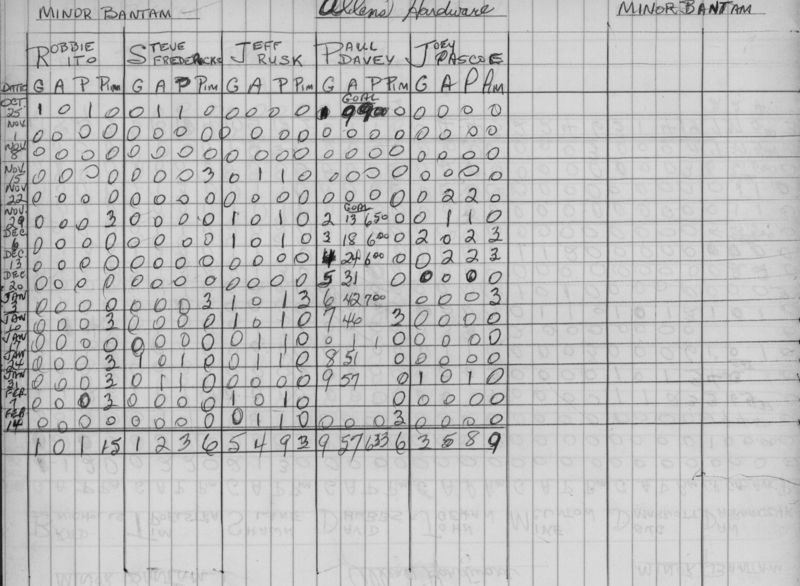 MINOR BANTAM Allens' Hardware MINOR BANTAM
ROBBIE ITO STEVE FREDERICKS JEFF RUSK PAUL DAVEY JOEY PASCOE
DATE G A P Pim G A P Pim G A P Pim G A P Pim G A P Pim
GOAL
OCT 25 1 0 1 0 0 1 1 0 0 0 0 0 1 9 900 0 0 0 0 0
NOV 1 0 0 0 0 0 0 0 0 0 0 0 0 0 0 0 0 0 0 0 0
NOV 8 0 0 0 0 0 0 0 0 0 0 0 0 0 0 0 0 0 0 0 0
NOV 15 0 0 0 0 0 0 0 3 0 1 1 0 0 0 0 0 0 0 0 0
NOV 22 0 0 0 0 0 0 0 0 0 0 0 0 0 0 0 0 0 2 2 0
GOAL
NOV 29 0 0 0 3 0 0 0 0 1 0 1 0 2 13 650 0 0 1 1 0
DEC 6 0 0 0 0 0 0 0 0 1 0 1 0 3 18 600 0 2 0 2 3
DEC 13 0 0 0 0 0 0 0 0 0 0 0 0 4 24 600 0 0 2 2 3
DEC 20 0 0 0 0 0 0 0 0 0 0 0 0 5 31 0 0 0 0 0
JAN 3 0 0 0 0 0 0 0 3 1 0 1 3 6 42 700 0 0 0 3
JAN 10 0 0 0 3 0 0 0 0 1 0 1 0 7 46 3 0 0 0 0
JAN 17 0 0 0 0 0 0 0 0 0 1 1 0 0 1 1 0 0 0 0 0
JAN 24 0 0 0 3 1 0 1 0 0 1 1 0 8 51 0 0 0 0 0
JAN 31 0 0 0 3 0 1 1 0 0 0 0 0 9 57 0 1 0 1 0
FEB 7 0 0 0 3 0 0 0 0 1 0 1 0 0 0 0 0 0
FEB 14 0 0 0 0 0 0 0 0 0 1 1 0 3 0 0 0 0
1 0 1 15 1 2 3 6 5 4 9 3 9 57 633 6 3 5 8 9